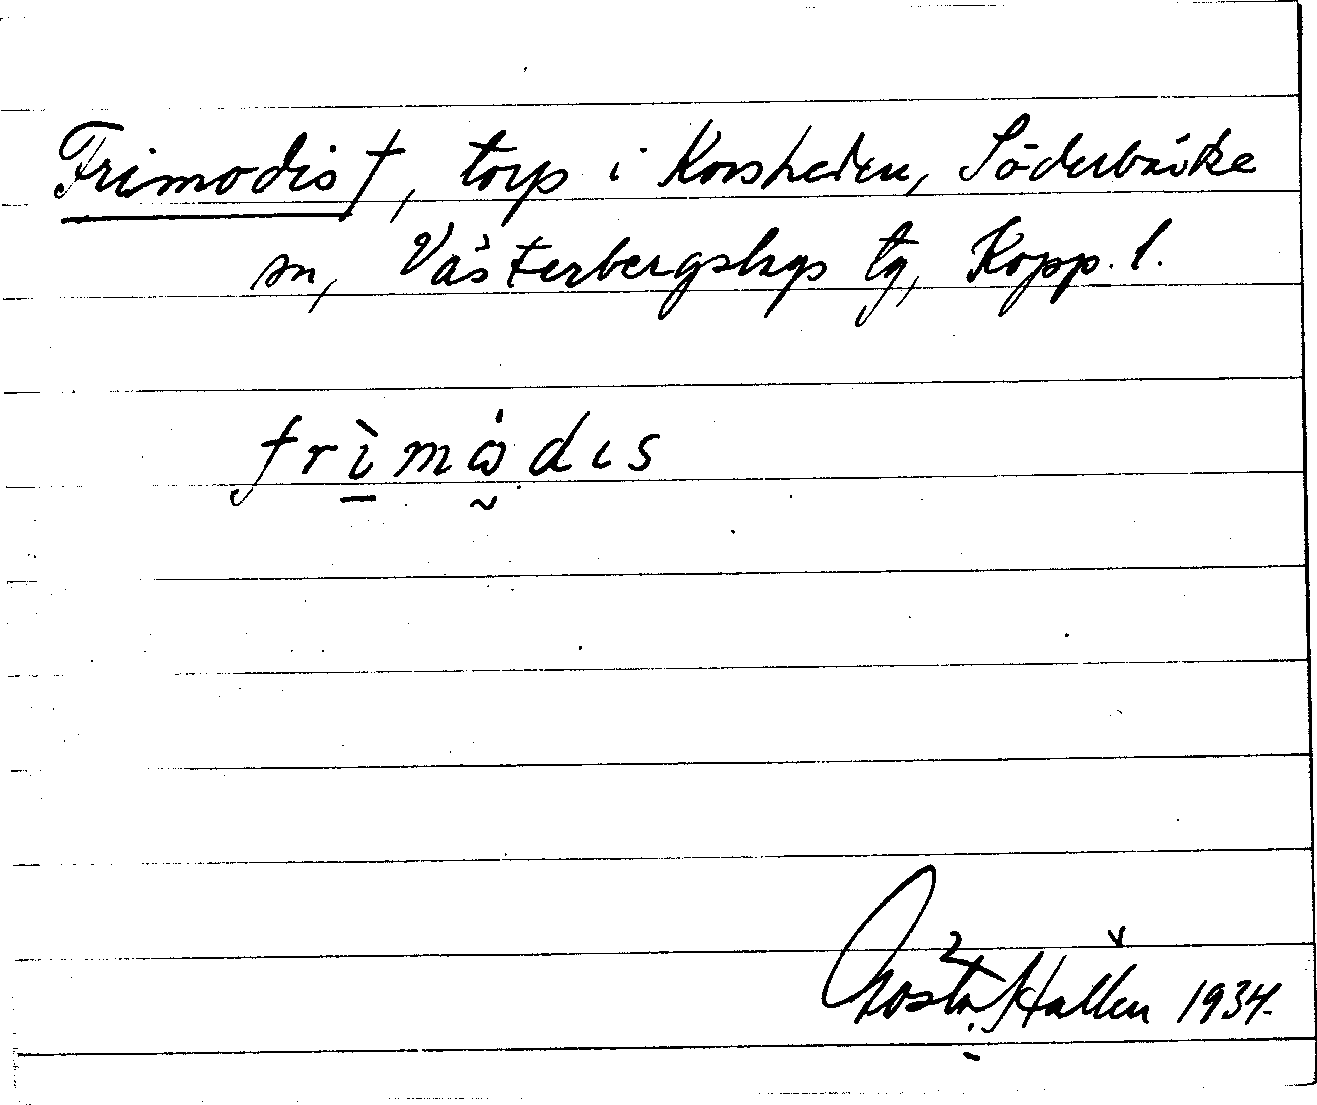 Frimodis †, torp i Korsheden, Söderbärke
sn, Västerbergslags tg, Kopp. l.
frìmω̇dıs
Gösta Hallén 1934.